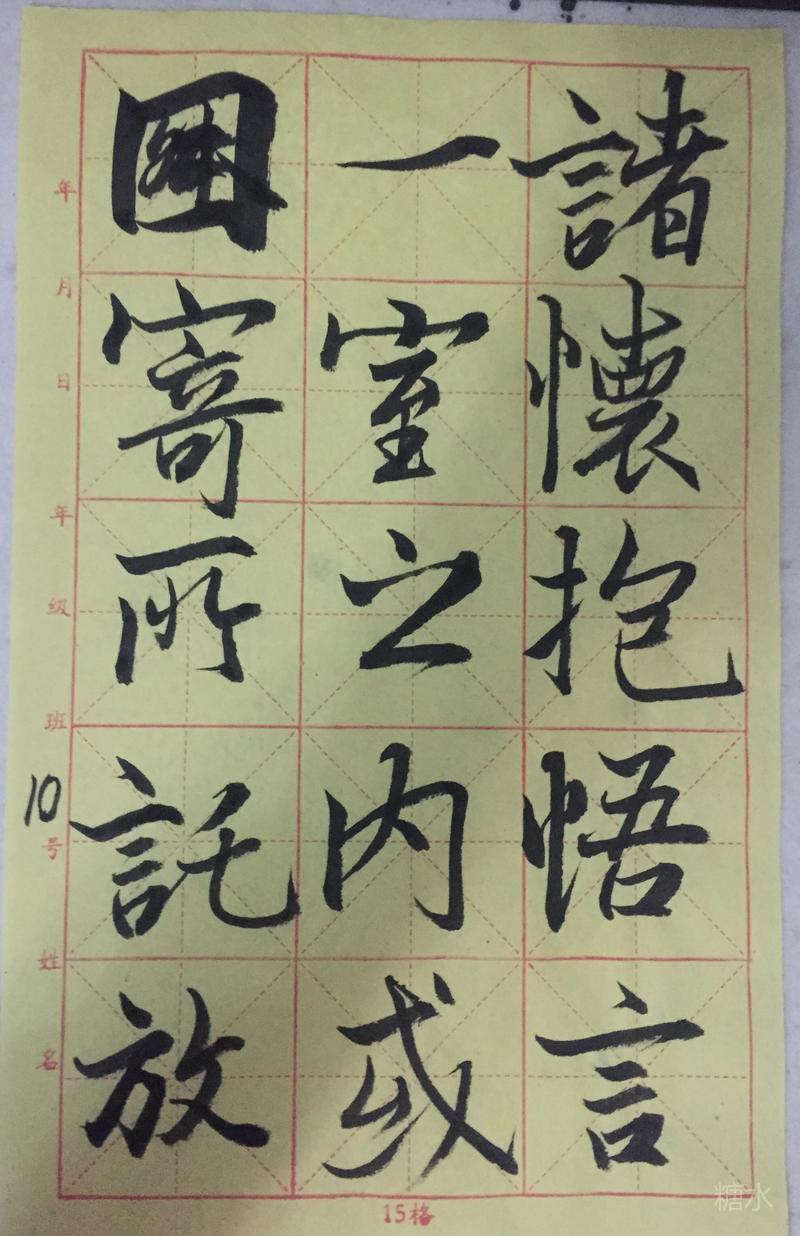 諸懷抱悟言
一室之内或
因寄所託放
年
月
日
年
级
班
10号
姓
名
15格
糖水